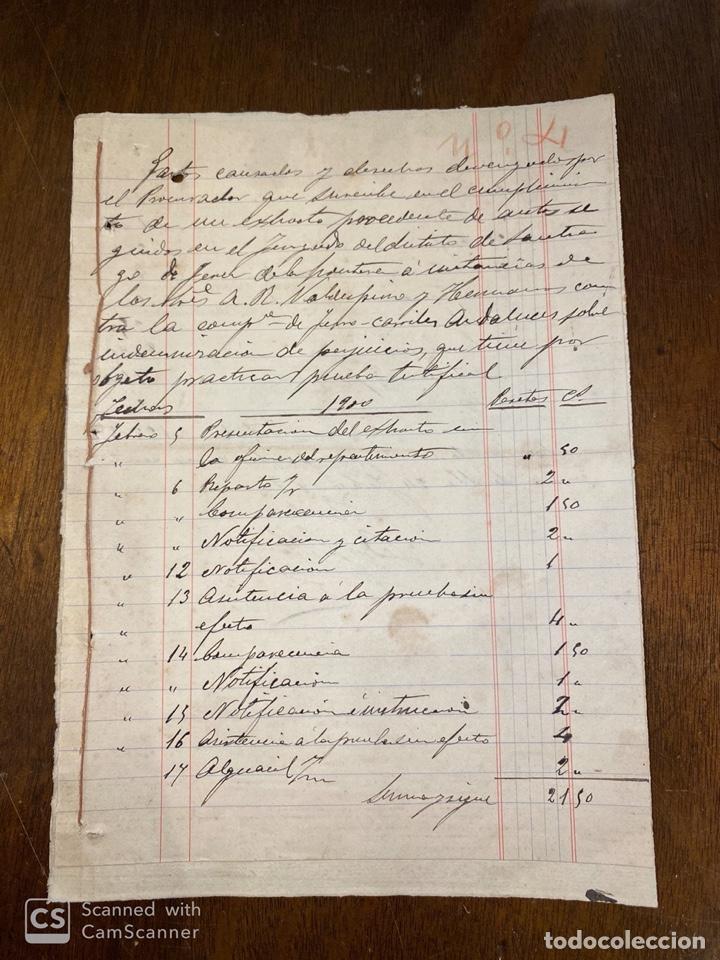 Nº 4
Gastos causados y derechos devengados por
el Procurador que suscribe en el cumplimien
to de un exhorto procedente de autos se
guidos en el Juzgado del distrito de Santia
go de Jerez de la frontera á instancias de
los Sres A. R. Valdespino y Hermanos con
tra la compª de ferro-carriles Andaluces sobre
indemnizacion de perjuicios, que tiene por
objeto practicar prueba testifical
Fechas 1900 Pesetas Cs
Febrero 5 Presentacion del exhorto en
" la oficina del repartimiento " 50
" 6 Reparto 2 "
" " Comparecencia 1 50
" " Notificacion y citacion 2 "
" 12 Notificacion 1
" 13 Asistencia á la prueba sin
" efecto 4 "
" 14 Comparecencia 1 50
" " Notificacion 1 "
" 15 Notificacion é instruccion 2 "
" 16 Asistencia á la prueba sin efecto 4
17 Alguacil 2 "
Suma y sigue 21 50
CS Scanned with
CamScanner
todocoleccion